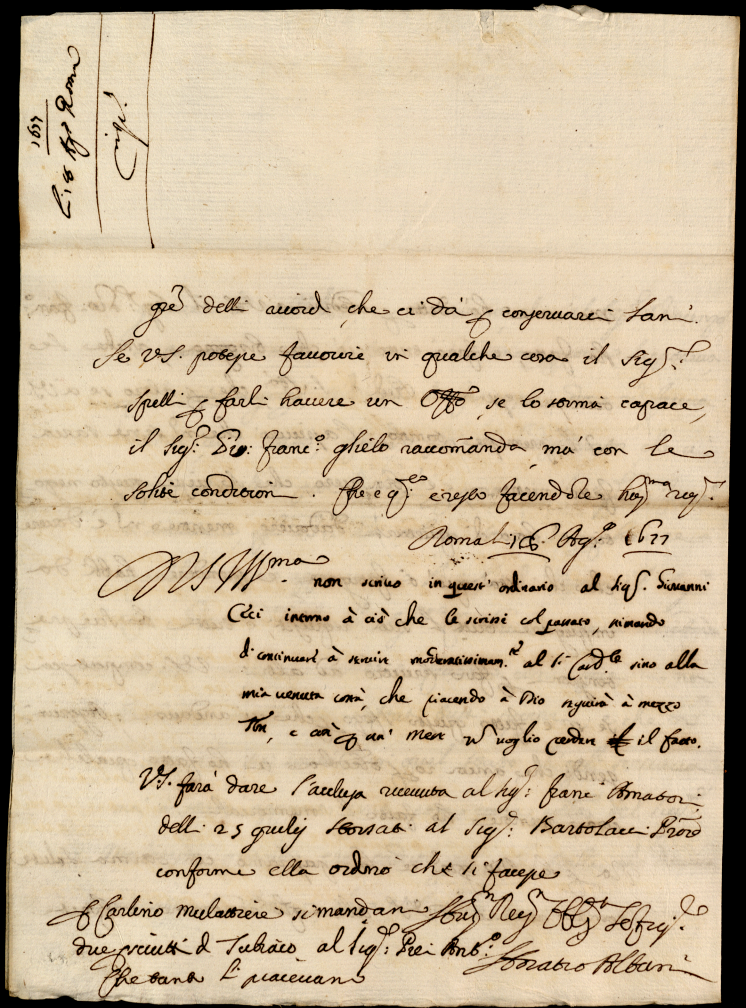 1677
Li 18 Agº Roma
delli avvisi che ci dà p conservarci sani.
Se VS. potesse favorire in qualche cosa il Sigr.
Spelli p farli havere un Offº, se lo stima capace,
il Sigr. Gio: Francº. glielo raccomanda, mà con le
solite condizioni. Che è qto. e resto facendole
Roma li 18. Agº. 1677
VS Illma
non scrivo in quest' ordinario al Sigr. Giovanni
Ceci intorno à ciò che le scrissi col passato, stimando
di continuare à servire al Sr. Cardle. sino alla
mia venuta costà, che piacendo à Dio seguirà à mezzo
e così p un' mese voglio perdere il fatto.
VS. farà dare l'acclusa ricevuta al Sigr. Franc. Amatori
delli 25 giulij sborsati al Sigr. Bartolacci
conforme ella ordinò che si facesse
p Carlino mulattiere si mandan
due di Subiaco al Sigr. Antº.
che tanto li piacevano
Horatio Albani